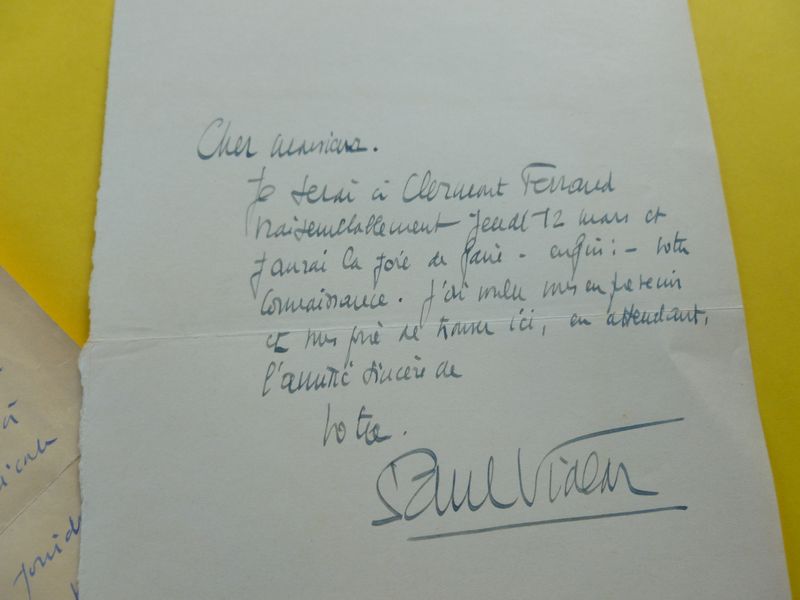 Cher Monsieur.
Je serai à Clermont Ferrand
vraisemblablement jeudi 12 mars et
j'aurai la joie de faire - enfin! - votre
connaissance. J'ai voulu vous en prévenir
et vous prie de trouver ici, en attendant,
l'amitié sincère de
votre.
Paul Vialar
à